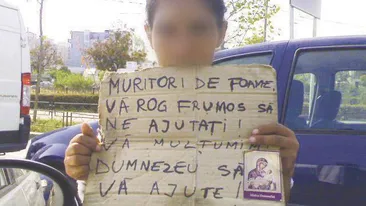 MURITORI DE FOAME,
VĂ ROG FRUMOS SĂ
NE AJUTAȚI!
VĂ MULȚUMIM
DUMNEZEU SĂ
VĂ AJUTE!